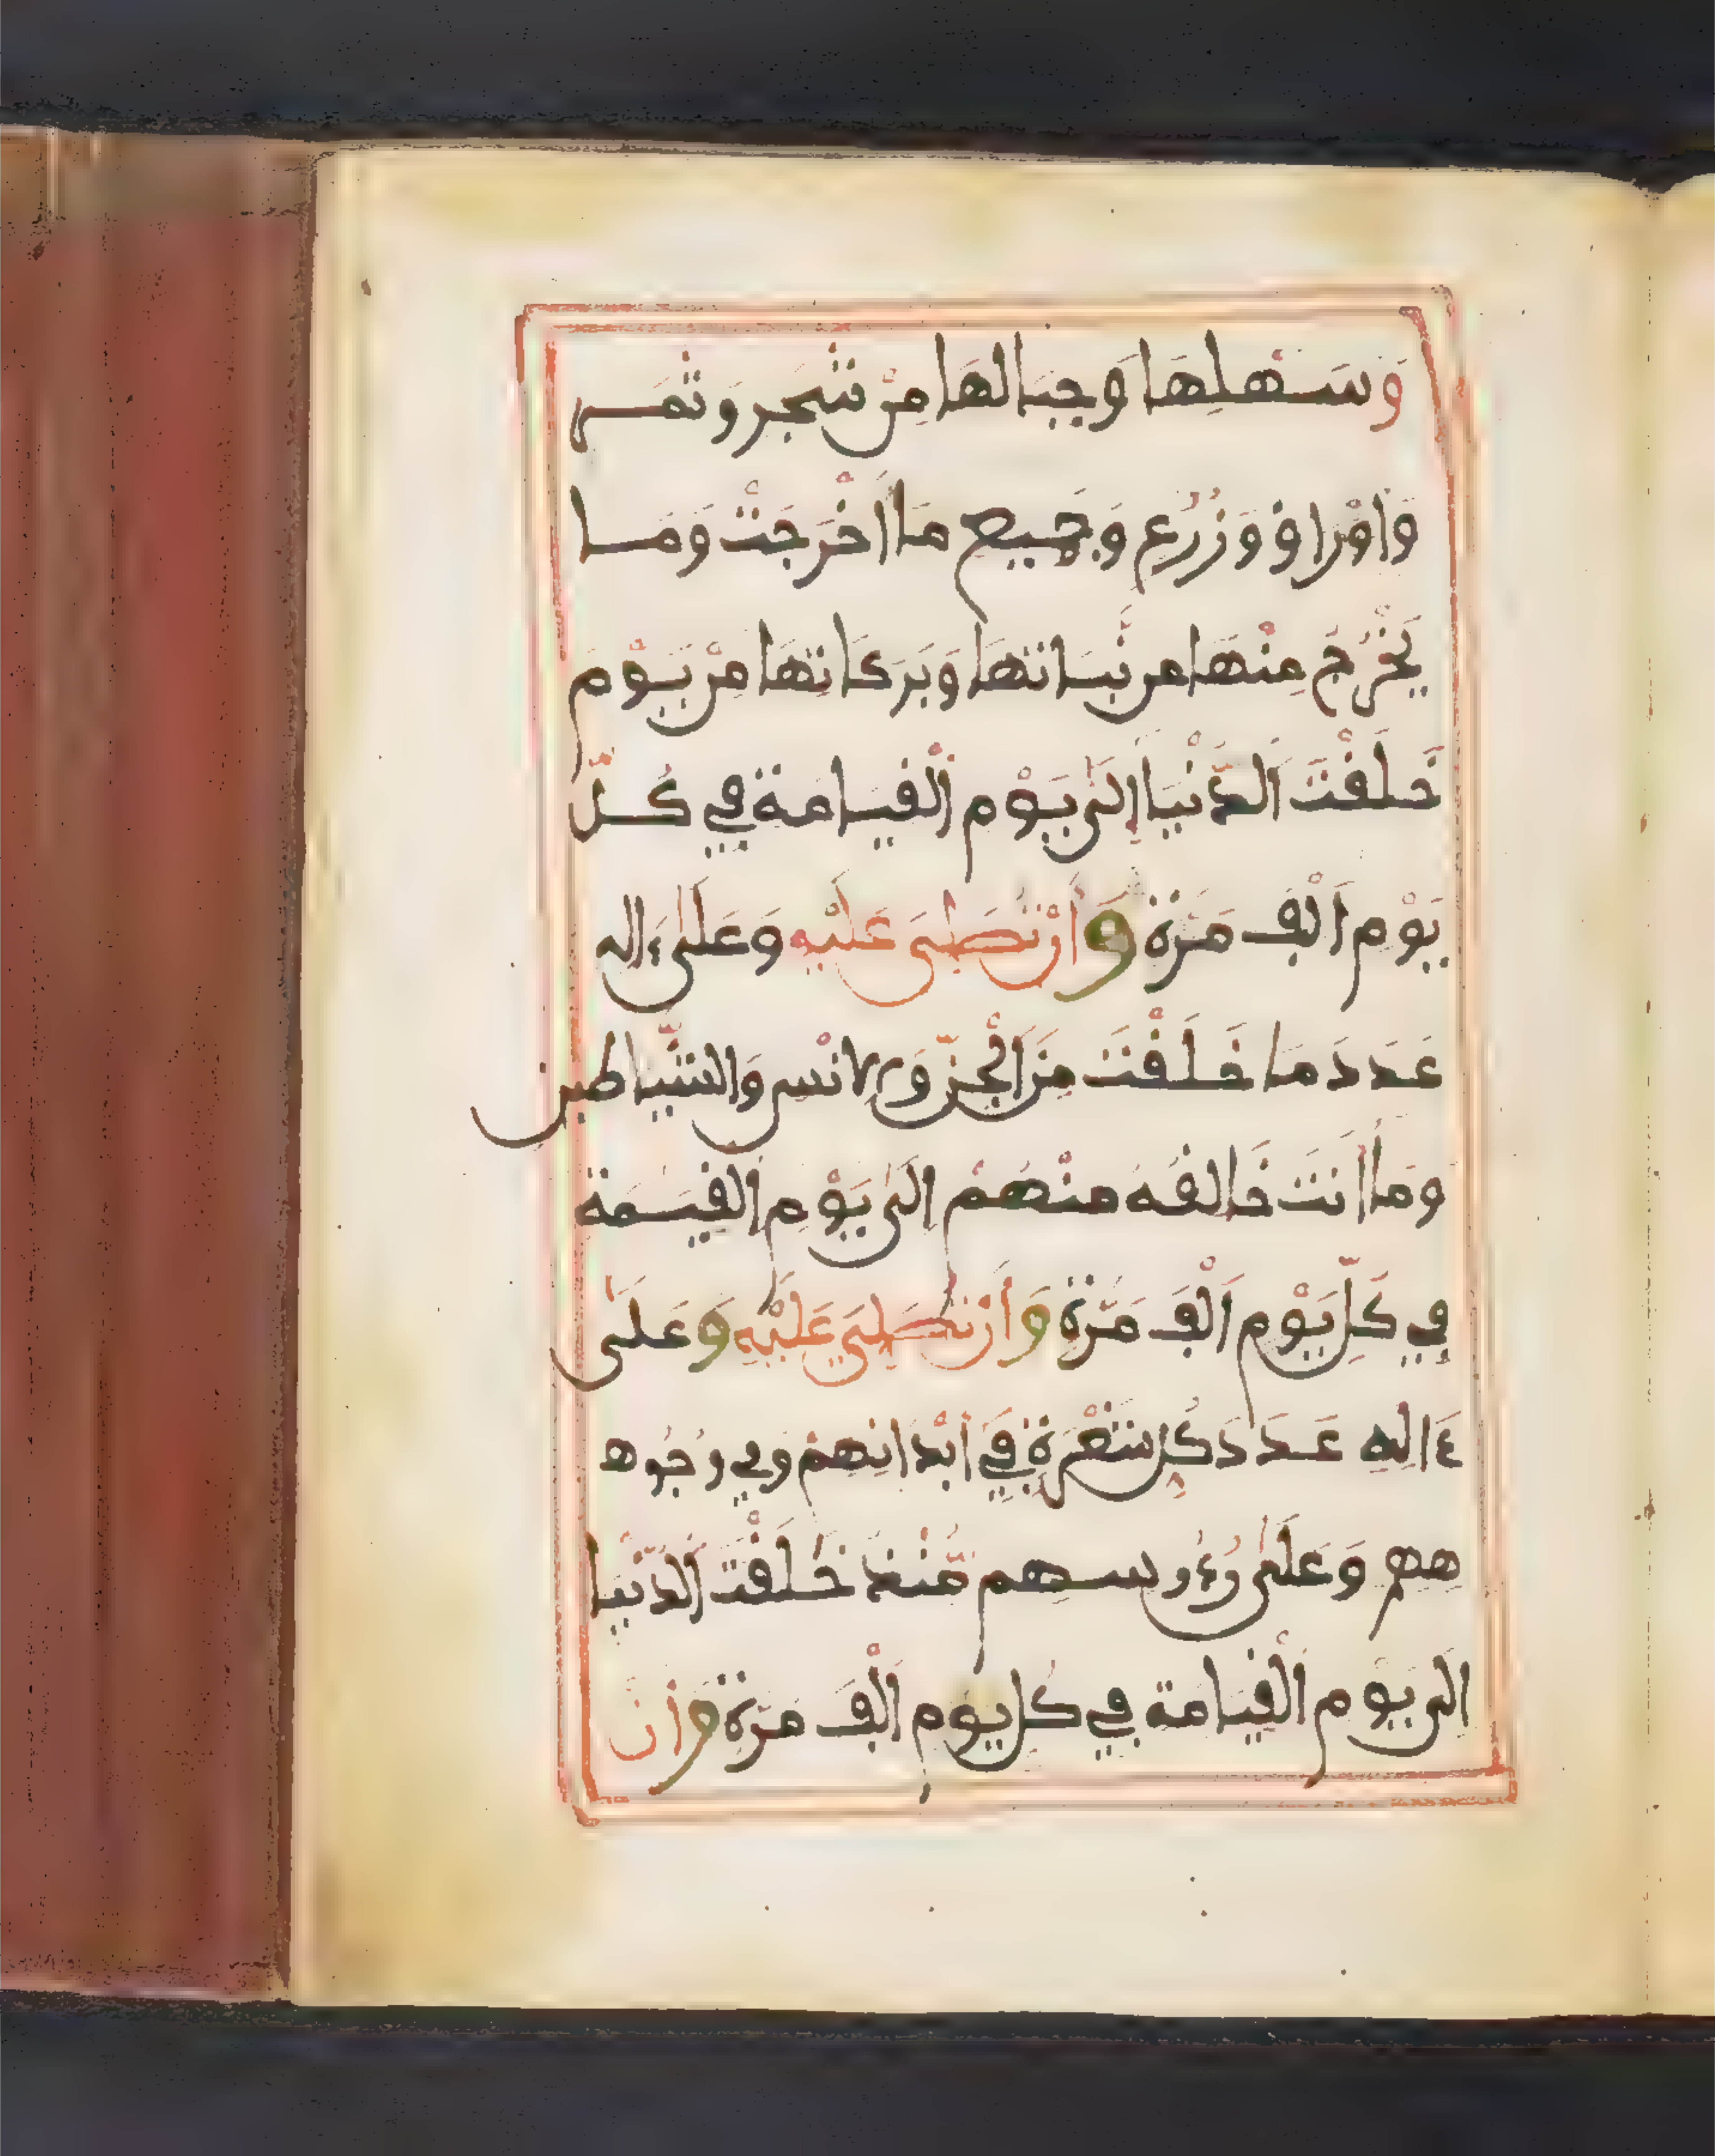 وَسَهْلِهَا وَجِبَالِهَا مِنْ شَجَرٍ وَثَمَرٍ
وَأَوْرَاقٍ وَزَرْعٍ وَجَمِيعِ مَا أَخْرَجَتْ وَمَا
يَخْرُجُ مِنْهَا مِن نَّبَاتِهَا وَبَرَكَاتِهَا مِنْ يَوْمِ
خَلَقْتَ الدُّنْيَا إِلَى يَوْمِ الْقِيَامَةِ فِي كُلِّ
يَوْمٍ أَلْفَ مَرَّةٍ وَأَنْ تُصَلِّيَ عَلَيْهِ وَعَلَى ءَالِهِ
عَدَدَ مَا خَلَقْتَ مِنَ الْجِنِّ وَالْإِنْسِ وَالشَّيَاطِينِ
وَمَا أَنتَ خَالِقُهُ مِنْهُمْ إِلَى يَوْمِ الْقِيَمَةِ
فِي كُلِّ يَوْمٍ أَلْفَ مَرَّةٍ وَأَنْ تُصَلِّيَ عَلَيْهِ وَعَلَى
ءَالِهِ عَدَدَ كُلِّ شَعْرَةٍ فِي أَبْدَانِهِمْ وَفِي وُجُوهِ
هِهِمْ وَعَلَى رُءُوسِهِمْ مُّنْذُ خَلَقْتَ الدُّنْيَا
إِلَى يَوْمِ الْقِيَامَةِ فِي كُلِّ يَوْمٍ أَلْفَ مَرَّةٍ وَأَنْ